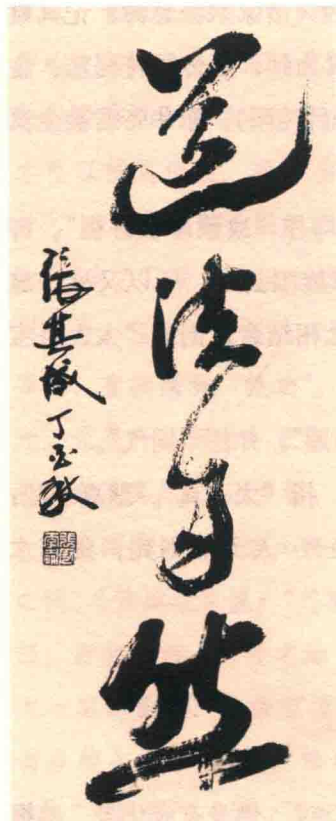 道法自然
張其成丁亥秋